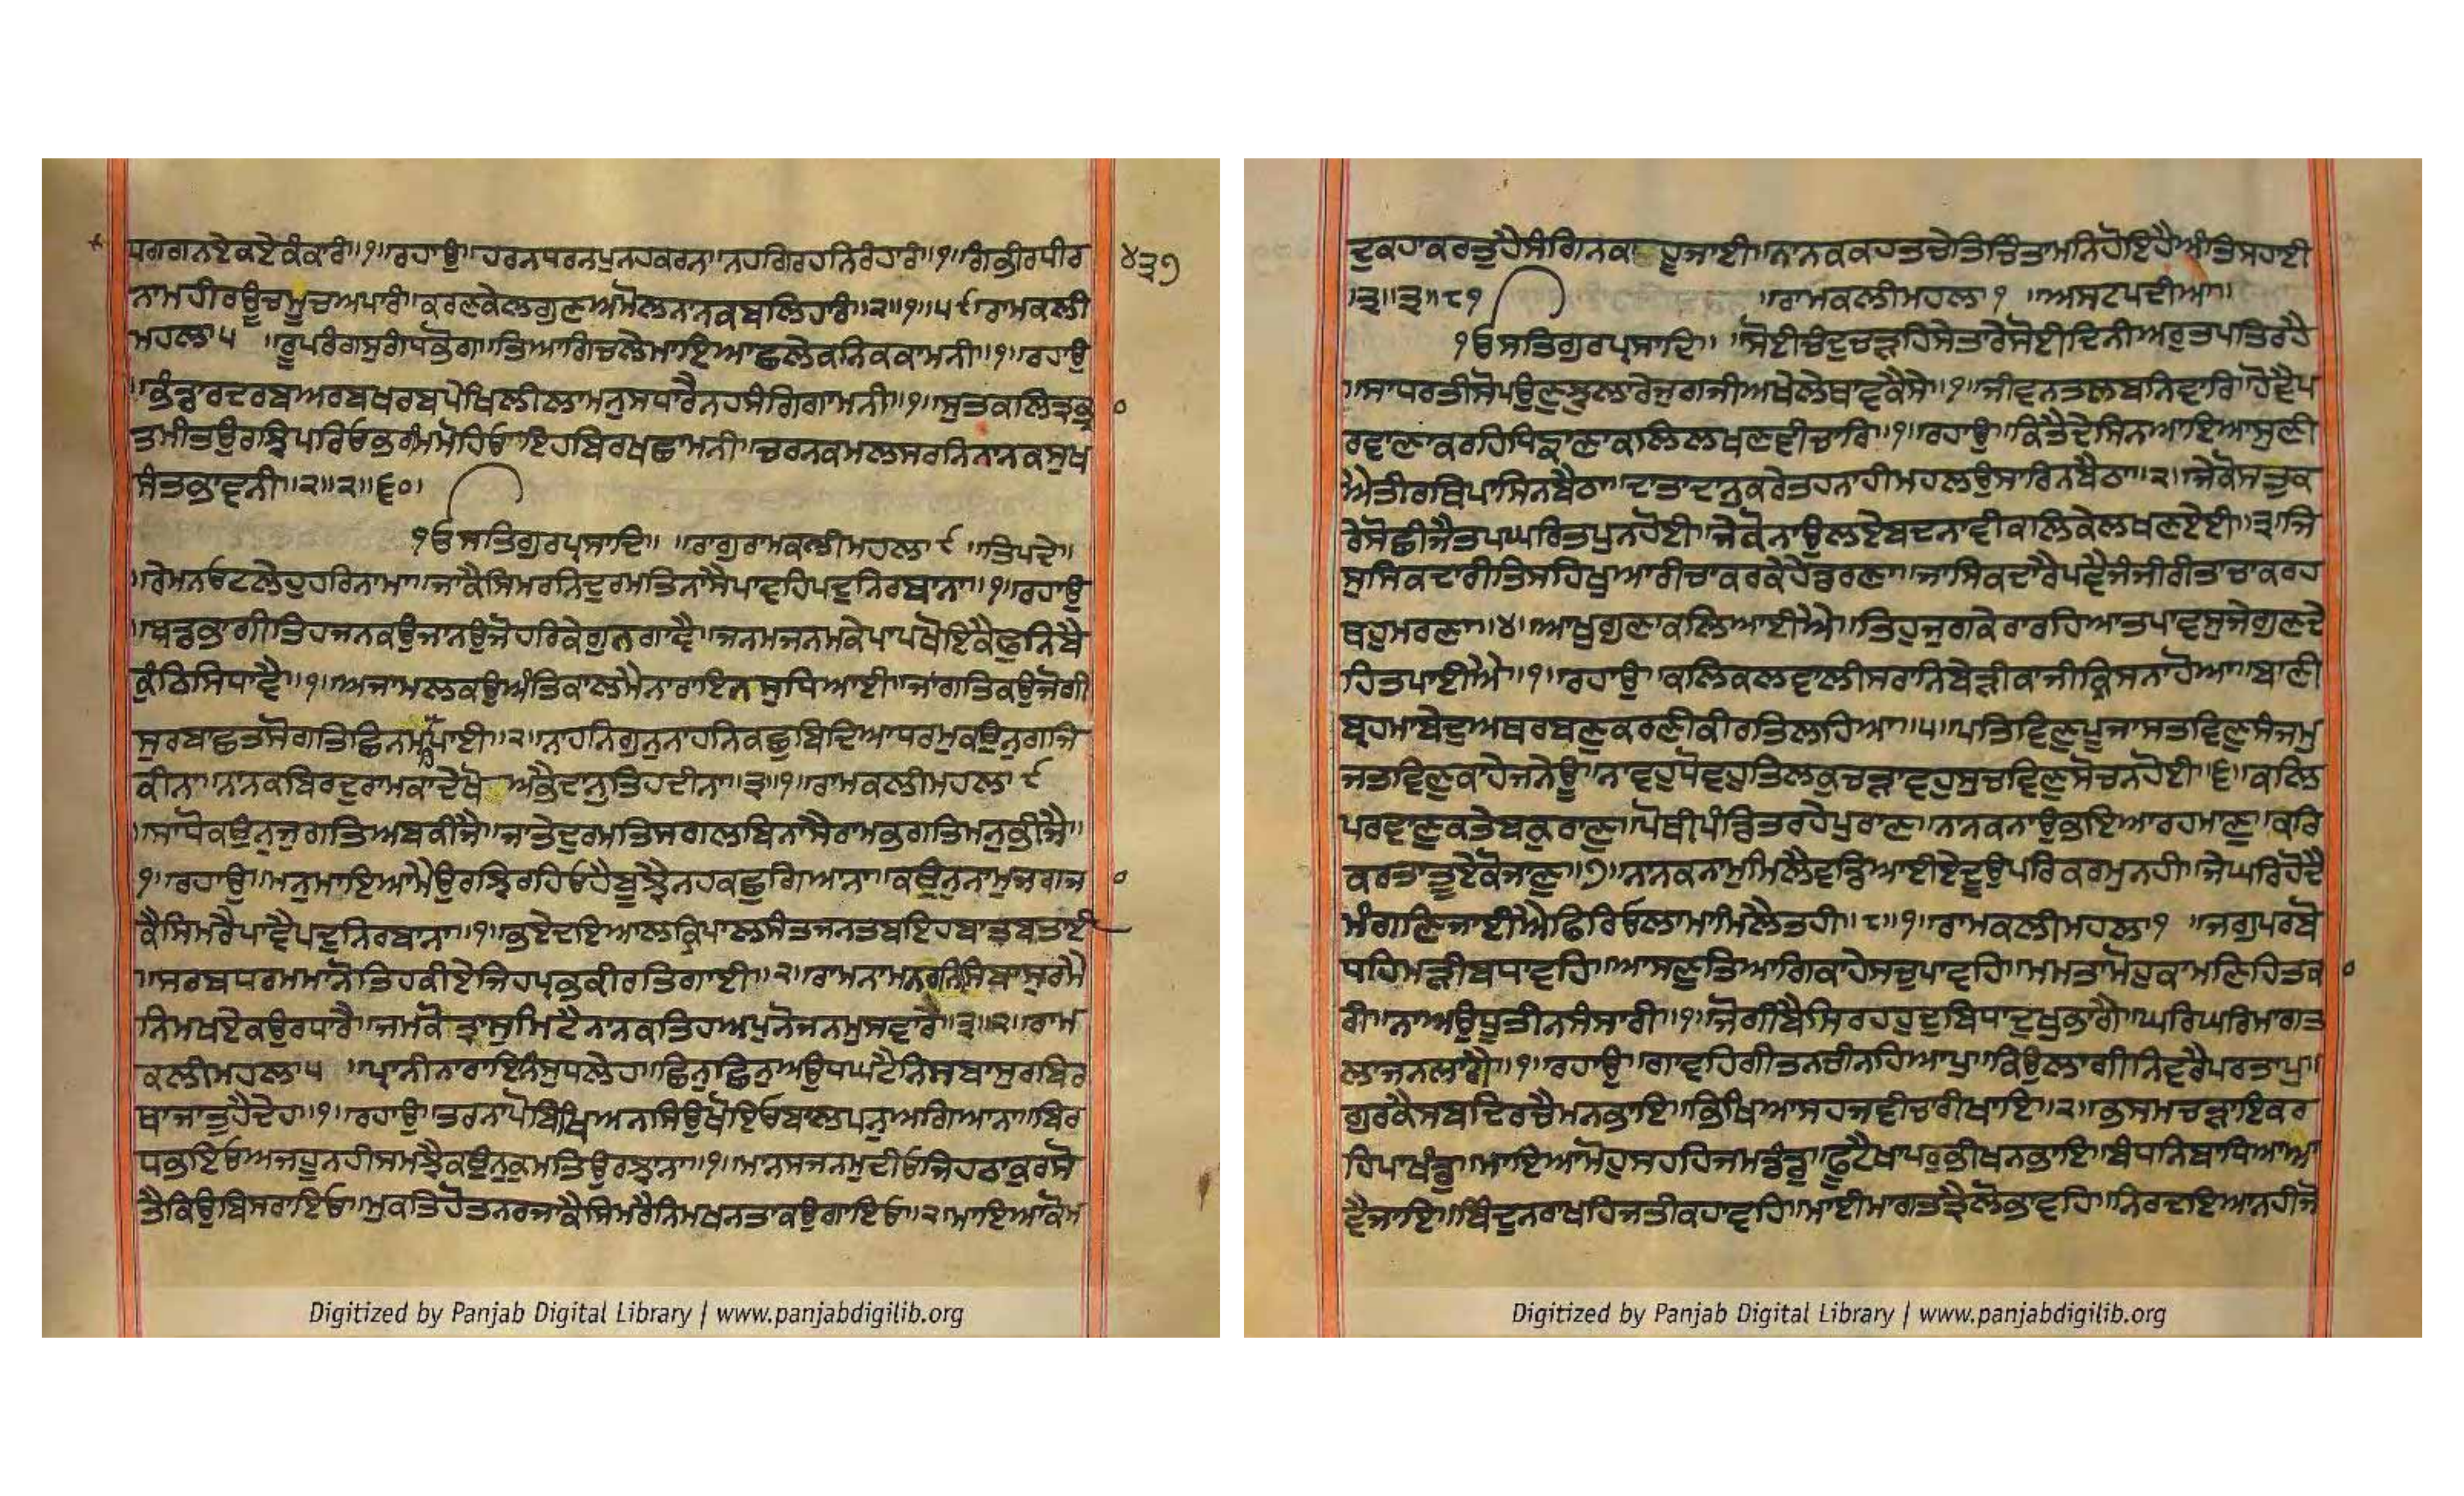 ਧਰਗਗਨਏਕਏਕੰਕਾਰੀ॥੧॥ਰਹਾਉ॥ਹਰਨਧਰਨਪੁਨਹਕਰਨ॥ਨਹਗਿਰਹਨਿਰੰਹਾਰੀ॥੧॥ਗੰਭੀਰਧੀਰ
੪੩੭
ਨਾਮਹੀਰਊਚਮੂਚਅਪਾਰੀ॥ਕਰਣਕੇਲਗੁਣਅਮੋਲਨਾਨਕਬਲਿਹਾਰੀ॥੨॥੧॥੫੯ਰਾਮਕਲੀ
ਮਹਲਾ੫ ॥ਰੂਪਰੰਗਸੁਗੰਧਭੋਗ॥ਤਿਆਗਿਚਲੇਮਾਇਆਛਲੇਕਨਿਕਕਾਮਨੀ॥੧॥ਰਹਾਉ
॥ਭੰਡਾਰਦਰਬਅਰਬਖਰਬਪੇਖਿਲੀਲਾਮਨੁਸਧਾਰੈਨਹਸੰਗਿਗਾਮਨੀ॥੧॥ਸੁਤਕਲਿਤ੍ਰਭ੍ਰਾ
ਤਮੀਤਉਰਝਿਪਰਿਓਭਰਮਿਮੋਹਿਓ॥ਇਹਬਿਰਖਛਾਮਨੀ॥ਚਰਨਕਮਲਸਰਨਿਨਾਨਕਸੁਖ
ਸੰਤਭਾਵਨੀ॥੨॥੨॥੬੦॥
੧ਓਸਤਿਗੁਰਪ੍ਰਸਾਦਿ॥ ॥ਰਾਗੁਰਾਮਕਲੀਮਹਲਾ ੯ ॥ਤਿਪਦੇ॥
॥ਰੇਮਨਓਟਲੇਹੁਹਰਿਨਾਮਾ॥ਜਾਕੈਸਿਮਰਨਿਦੁਰਮਤਿਨਾਸੈਪਾਵਹਿਪਦੁਨਿਰਬਾਨਾ॥੧॥ਰਹਾਉ
॥ਬਡਭਾਗੀਤਿਹਜਨਕਉਜਾਨਉਜੋਹਰਿਕੇਗੁਨਗਾਵੈ॥ਜਨਮਜਨਮਕੇਪਾਪਖੋਇਕੈਫੁਨਿਬੈ
ਕੁੰਠਿਸਿਧਾਵੈ॥੧॥ਅਜਾਮਲਕਉਅੰਤਿਕਾਲਮੈਨਾਰਾਇਨਸੁਧਿਆਈ॥ਜਾਂਗਤਿਕਉਜੋਗੀ
ਸੁਰਬਾਛਤਸੋਗਤਿਛਿਨਮਹਿਪਾਈ॥੨॥ਨਾਹਨਿਗੁਨੁਨਾਹਨਿਕਛੁਬਿਦਿਆਧਰਮੁਕਉਨੁਗਜਿ
ਕੀਨਾ॥ਨਾਨਕਬਿਰਦੁਰਾਮਕਾਦੇਖੋ ਅਭੈਦਾਨੁਤਿਹਦੀਨਾ॥੩॥੧॥ਰਾਮਕਲੀਮਹਲਾ ੯
॥ਸਾਧੋਕਉਨੁਜੁਗਤਿਅਬਕੀਜੈ॥ਜਾਤੇਦੁਰਮਤਿਸਗਲਬਿਨਾਸੈਰਾਮਭਗਤਿਮਨੁਭੀਜੈ॥
੧॥ਰਹਾਉ॥ਮਨੁਮਾਇਆਮੈਉਰਝਿਰਹਿਓਹੈਬੂਝੈਨਹਕਛੁਗਿਆਨਾ॥ਕਉਨੁਨਾਮੁਜਗਜਾ
ਕੈਸਿਮਰੈਪਾਵੈਪਦੁਨਿਰਬਾਨਾ॥੧॥ਭਏਦਇਆਲਕ੍ਰਿਪਾਲਸੰਤਜਨਤਬਇਹਬਾਤਬਤਾਈ
॥ਸਰਬਧਰਮਮਾਨੋਤਿਹਕੀਏਜਿਹਪ੍ਰਭਕੀਰਤਿਗਾਈ॥੨॥ਰਾਮਨਾਮਨਰਨਿਸਿਬਾਸੁਰਮੈ
ਨਿਮਖਏਕਉਰਧਾਰੈ॥ਜਮਕੋਤ੍ਰਾਸੁਮਿਟੈਨਾਨਕਤਿਹਅਪੁਨੋਜਨਮੁਸਵਾਰੈ॥੩॥੨॥ਰਾਮ
ਕਲੀਮਹਲਾ੫ ॥ਪ੍ਰਾਨੀਨਾਰਾਇਨਿਸੁਧਲੇਹ॥ਛਿਨੁਛਿਨੁਅਉਧਘਟੈਨਿਸਬਾਸੁਰਬਿਰ
ਥਾਜਾਤੁਹੈਦੇਹ॥੧॥ਰਹਾਉ॥ਤਰਨਾਪੋਬਿਖਿਅਨਸਿਉਖੋਇਓਬਾਲਪਨੁਅਗਿਆਨਾ॥ਬਿਰ
ਧਭਇਓਅਜਹੂਨਹੀਸਮਝੈਕਉਨੁਕੁਮਤਿਉਰਝਾਨਾ॥੧॥ਮਾਨਸਜਨਮੁਦੀਓਜਿਹਠਾਕੁਰਸੋ
ਤੈਕਿਉਬਿਸਰਾਇਓ॥ਮੁਕਤਿਹੋਤਨਰਜਾਕੈਸਿਮਰੈਨਿਮਖਨਤਾਕਉਗਾਇਓ॥੨॥ਮਾਇਆਕੋਮ
ਦੁਕਹਾਕਰਤੁਹੈਸੰਗਿਨਕਾ ਹੂਜਾਈ॥ਨਾਨਕਕਹਤਚੇਤਿਚਿੰਤਾਮਨਿਹੋਇਹੈਅੰਤਿਸਹਾਈ
॥੩॥੩॥੮੧ ॥ਰਾਮਕਲੀਮਹਲਾ ੧ ॥ਅਸਟਪਦੀਆ॥
੧ਓਸਤਿਗੁਰਪ੍ਰਸਾਦਿ॥ ਸੋਈਚੰਦੁਚੜਹਿਸੇਤਾਰੇਸੋਈਦਿਨੀਅਰੁਤਪਤਿਰਹੈ
॥ਸਾਧਰਤੀਸੋਪਉਣੁਝੁਲਾਰੇਜੁਗਜੀਅਖੇਲੇਥਾਵਕੈਸੇ॥੧॥ਜੀਵਨਤਲਬਨਿਵਾਰਿ॥ਹੋਵੈਪ
ਰਵਾਣਾਕਰਹਿਧਿਙਾਣਾਕਲਿਲਖਣਵੀਚਾਰਿ॥੧॥ਰਹਾਉ॥ਕਿਤੈਦੇਸਿਨਆਇਆਸੁਣੀ
ਐਤੀਰਥਿਪਾਸਿਨਬੈਠਾ॥ਦਾਤਾਦਾਨੁਕਰੇਤਹਨਾਹੀਮਹਲਉਸਾਰਿਨਬੈਠਾ॥੨॥ਜੇਕੋਸਤੁਕ
ਰੇਸੋਛੀਜੈਤਪਘਰਿਤਪੁਨਹੋਈ॥ਜੇਕੋਨਾਉਲਏਬਦਨਾਵੀਕਲਿਕੇਲਖਣਏਈ॥੩॥ਜਿ
ਸੁਸਿਕਦਾਰੀਤਿਸਹਿਖੁਆਰੀਚਾਕਰਕੇਹੇਡਰਣਾ॥ਜਾਸਿਕਦਾਰੈਪਵੈਜੰਜੀਰੀਤਾਚਾਕਰਹ
ਥਹੁਮਰਣਾ॥੪॥ਆਖੁਗੁਣਾਕਲਿਆਈਐ॥ਤਿਹੁਜੁਗਕੇਰਾਰਹਿਆਤਪਾਵਸੁਜੇਗੁਣਦੇ
ਹਿਤਪਾਈਐ॥੧॥ਰਹਾਉ॥ਕਲਿਕਲਵਾਲੀਸਰਾਨਿਬੇੜੀਕਾਜੀਕ੍ਰਿਸਨਾਹੋਆ॥ਬਾਣੀ
ਬ੍ਰਹਮਾਬੇਦੁਅਥਰਬਣੁਕਰਣੀਕੀਰਤਿਲਹਿਆ॥੫॥ਪਤਿਵਿਣੁਪੂਜਾਸਤਵਿਣੁਸੰਜਮੁ
ਜਤਵਿਣੁਕਾਹੇਜਨੇਊ॥ਨਾਵਹੁਧੋਵਹੁਤਿਲਕੁਚੜਾਵਹੁਸੁਚਵਿਣੁਸੋਚਨਹੋਈ॥੬॥ਕਲਿ
ਪਰਵਾਣੁਕਤੇਬਕੁਰਾਣੁ॥ਪੋਥੀਪੰਡਿਤਰਹੇਪੁਰਾਣ॥ਨਾਨਕਨਾਉਭਇਆਰਹਮਾਣੁ॥ਕਰਿ
ਕਰਤਾਤੂਏਕੋਜਾਣੁ॥੭॥ਨਾਨਕਨਾਮੁਮਿਲੈਵਡਿਆਈਏਦੂਉਪਰਿਕਰਮੁਨਹੀ॥ਜੇਘਰਿਹੋਦੈ
ਮੰਗਣਿਜਾਈਐਫਿਰਿਓਲਾਮਾਮਿਲੈਤਹੀ॥੮॥੧॥ਰਾਮਕਲੀਮਹਲਾ੧ ॥ਜਗੁਪਰਬੋ
ਧਹਿਮੜੀਬਧਾਵਹਿ॥ਆਸਣੁਤਿਆਗਿਕਾਹੇਸਚੁਪਾਵਹਿ॥ਮਮਤਾਮੋਹੁਕਾਮਣਿਹਿਤਕਾ
ਰੀ॥ਨਾਅਉਧੂਤੀਨਸੰਸਾਰੀ॥੧॥ਜੋਗੀਬੈਸਿਰਹਹੁਦੁਬਿਧਾਦੁਖੁਭਾਗੈ॥ਘਰਿਘਰਿਮਾਗਤ
ਲਾਜਨਲਾਗੈ॥੧॥ਰਹਾਉ॥ਗਾਵਹਿਗੀਤਨਚੀਨਹਿਆਪੁ॥ਕਿਉਲਾਗੀਨਿਵਰੈਪਰਤਾਪੁ॥
ਗੁਰਕੈਸਬਦਿਰਚੈਮਨਭਾਇ॥ਭਿਖਿਆਸਹਜਵੀਚਾਰੀਖਾਇ॥੨॥ਭਸਮਚੜਾਇਕਰ
ਹਿਪਾਖੰਡੁ॥ਮਾਇਆਮੋਹੁਸਹਹਿਜਮਡੰਡੁ॥ਫੂਟੈਖਾਪਰੁਭੀਖਨਭਾਇ॥ਬੰਧਨਿਬਾਧਿਆਆ
ਵੈਜਾਇ॥ਬਿੰਦੁਨਰਾਖਹਿਜਤੀਕਹਾਵਹਿ॥ਮਾਈਮਾਗਤਤ੍ਰੈਲੋਭਾਵਹਿ॥ਨਿਰਦਇਆਨਹੀਜੋ
Digitized by Panjab Digital Library | www.panjabdigilib.org
Digitized by Panjab Digital Library | www.panjabdigilib.org